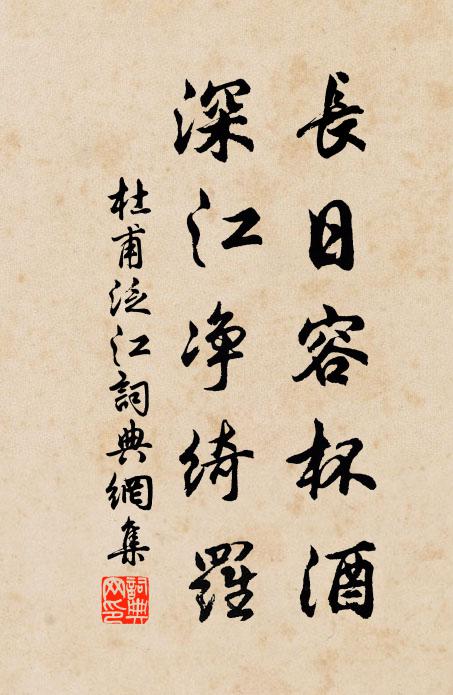 長日容杯酒
深江净綺羅
杜甫泛江詞典網集
詞典网印